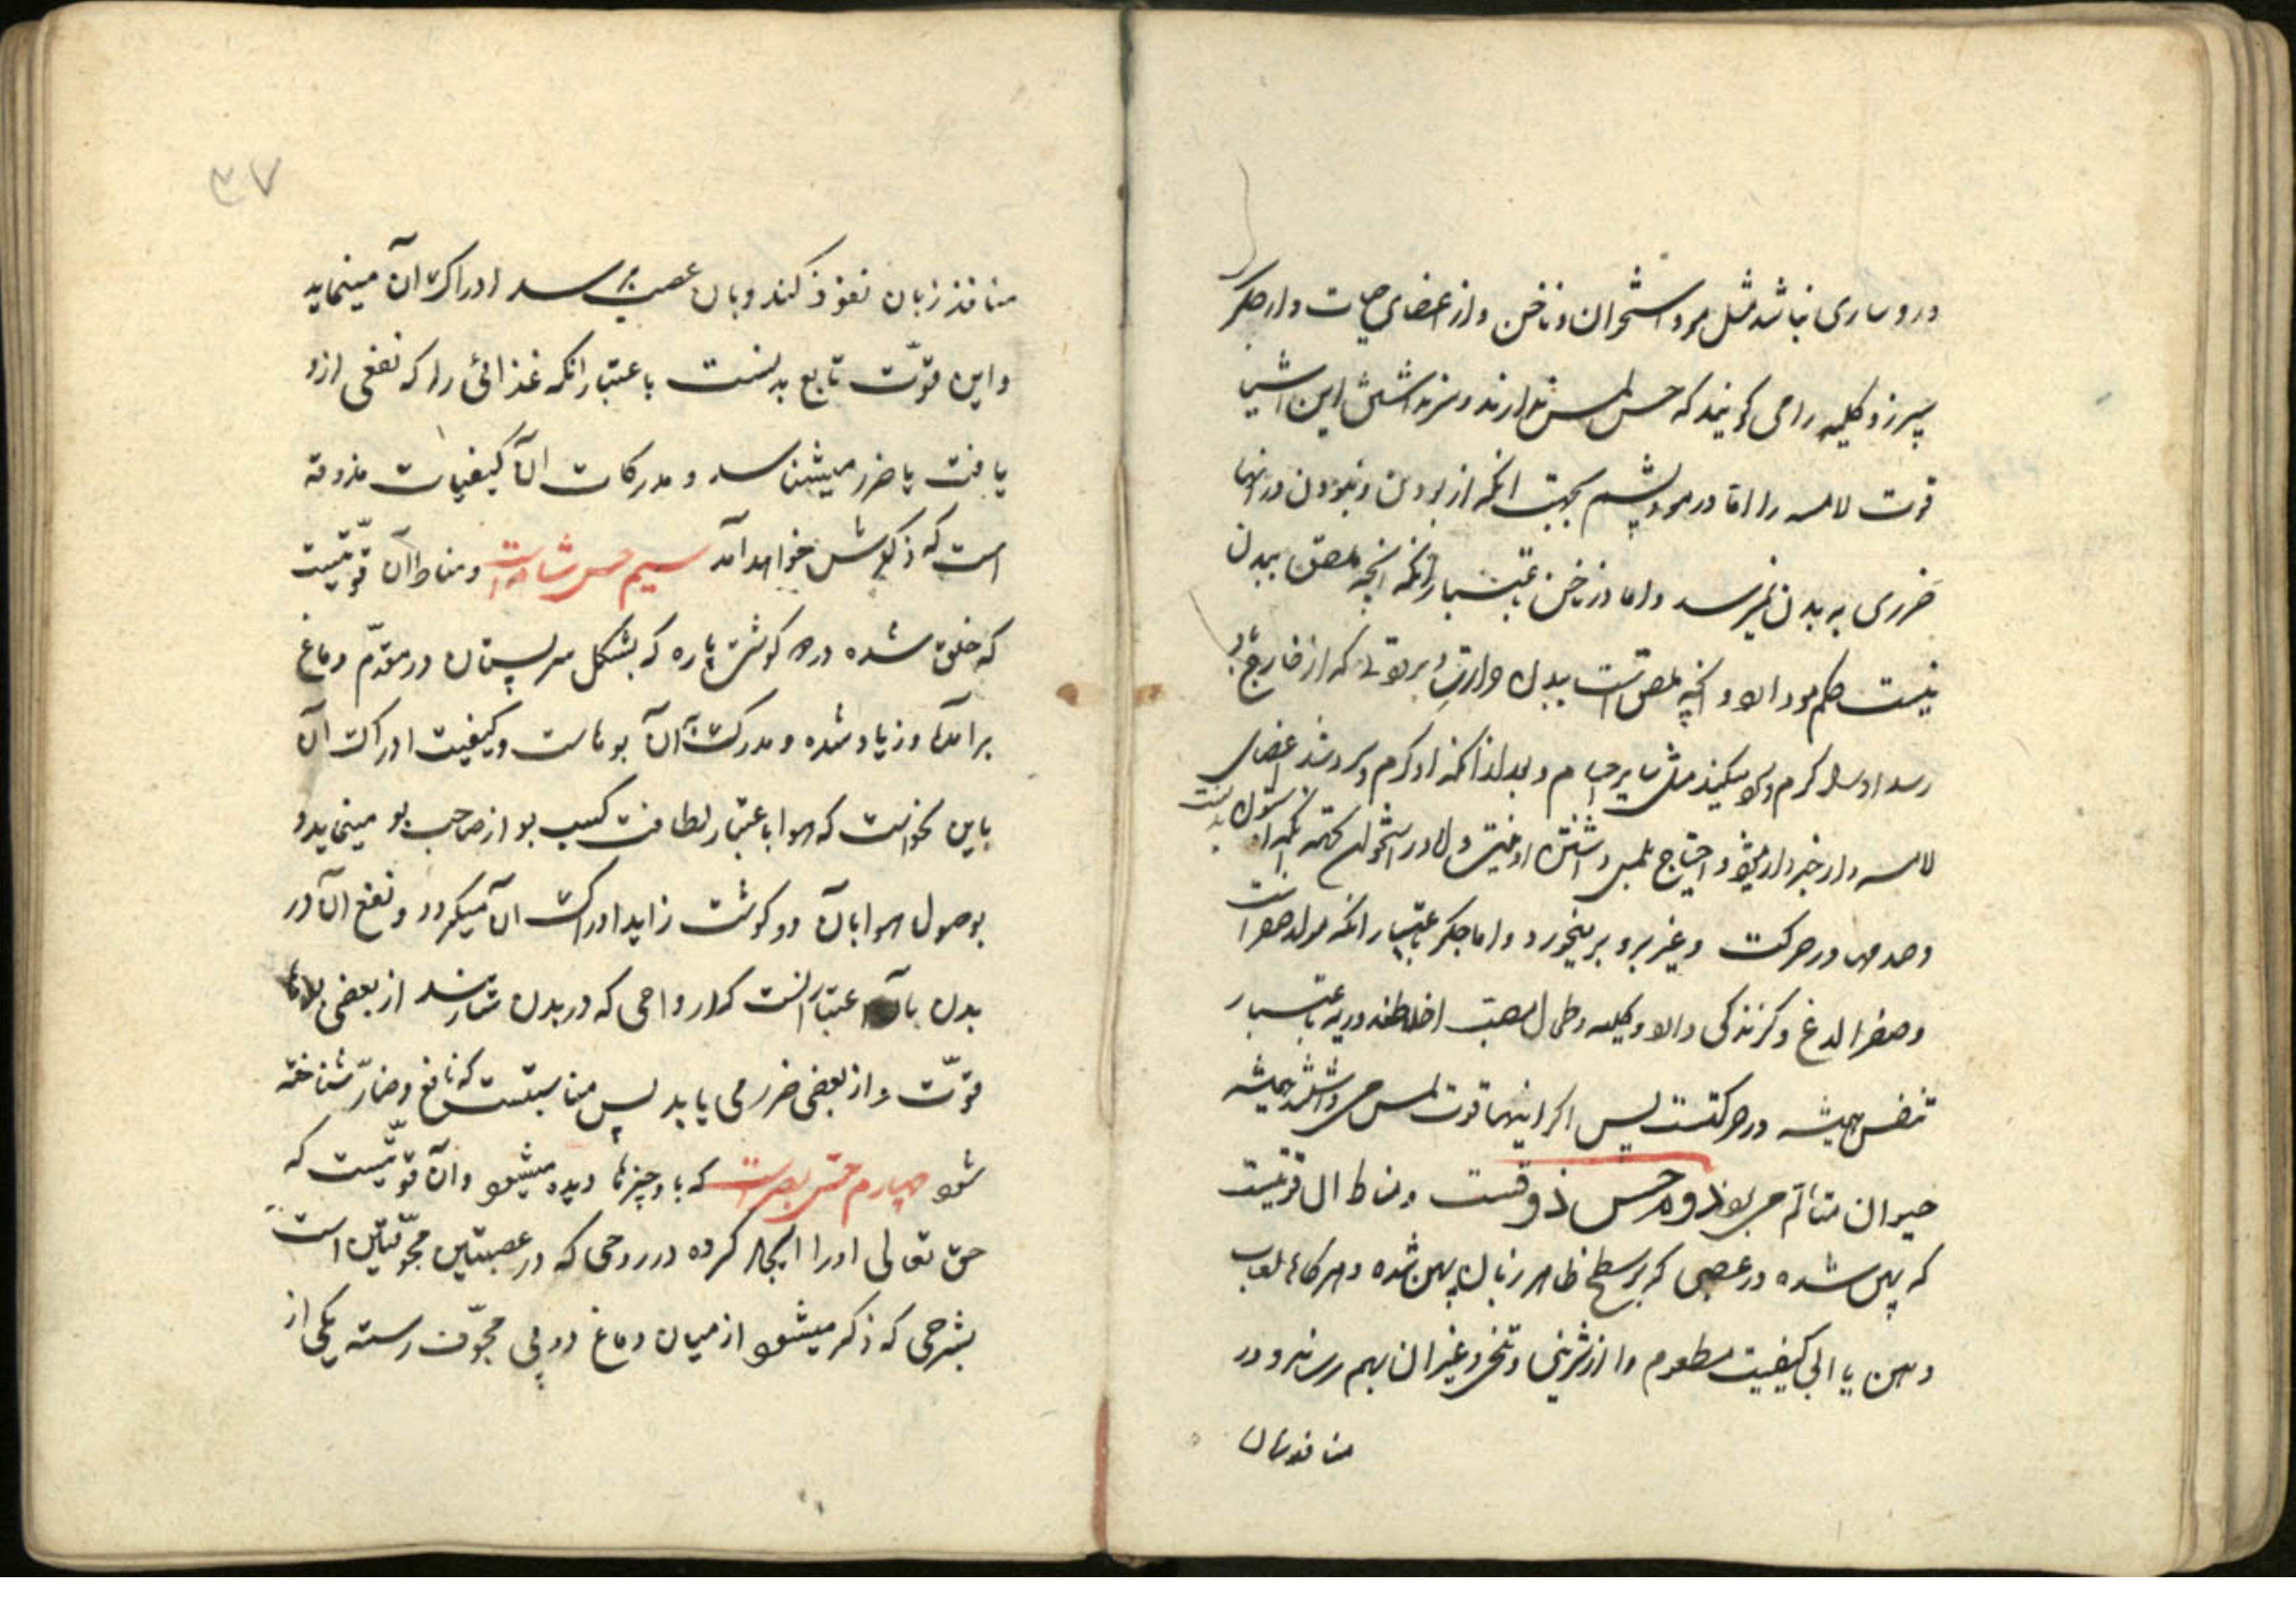 درو ساری نباشد مثل مو و استخوان و ناخن و از اعضای حیات دار جگر
سپرز و کلیه را می گویند که حس لمس ندارند و سر نداشتن این اشیا
قوت لامسه را اما در مو و پشم بجهت انکه از بودن و نبودن در انها
ضرری به بدن نمیرسد و اما در ناخن باعتبار انکه انچه ملصق ببدن
نیست حکم مو دارد و انچه ملصق است ببدن حرارت و برودتی که از خارج باو
رسد او را گرم و سرد میکند مثل سایر اجسام و بعد از انکه او گرم و سرد شد اعضای
لامسه دار خبردار میشوند و احتیاج بلمس داشتن او نیست و اما در استخوان بجهة انکه او ستون بدنست
و صدمها در حرکت و غیر برو بر میخورد و اما جگر باعتبار انکه مولد صفراست
و صفرا لدغ و گزندگی دارد و کلیه و طحال مصب اخلاطند و ریه باعتبار
تنفس همیشه در حرکتست پس اگر اینها قوت لمس می داشتند همیشه
حیوان متألم می بود دوم حس ذوقست و مناط ان قوتیست
که پهن شده در عصبی که بر سطح ظاهر زبان پهن شده و هر گاه لعاب
دهن یا ابی کیفیت مطعوم را از شیرینی و تلخی و غیر ان بهم رساند و در
منافذ زبان
۳۷
منافذ زبان نفوذ کند و بان عصب میرسد ادراک آن مینماید
و این قوّت تابع بدنست باعتبار انکه غذائی را که نفعی ازو
یافت یا ضرر میشناسد و مدرکات آن کیفیات مذوقه
است که ذکرش خواهد آمد سیم حس شامه است و مناط آن قوّتیست
که خلق شده در دو گوشت پاره که بشکل سر پستان در مقدّم دماغ
برآمده و زیاد شده و مدرکات آن بوهاست و کیفیت ادراک آن
باین نحو است که هوا باعتبار لطافت کسب بو از صاحب بو مینماید و
بوصول هوا بآن دو گوشت زاید ادراک آن میگردد و نفع آن در
بدن بآن اعتبار است که ارواحی که در بدن ساریند از بعضی بوها
قوّت و از بعضی ضرر می یابد پس مناسبتست که نافع و ضارّ شناخته
شود چهارم حس بصر است که باو چیزها دیده میشود و آن قوّتیست که
حق تعالی اورا ایجاد کرده در روحی که در عصبتین مجوّفتین است
بشرحی که ذکر میشود از میان دماغ دو پی مجوّف رسته یکی از